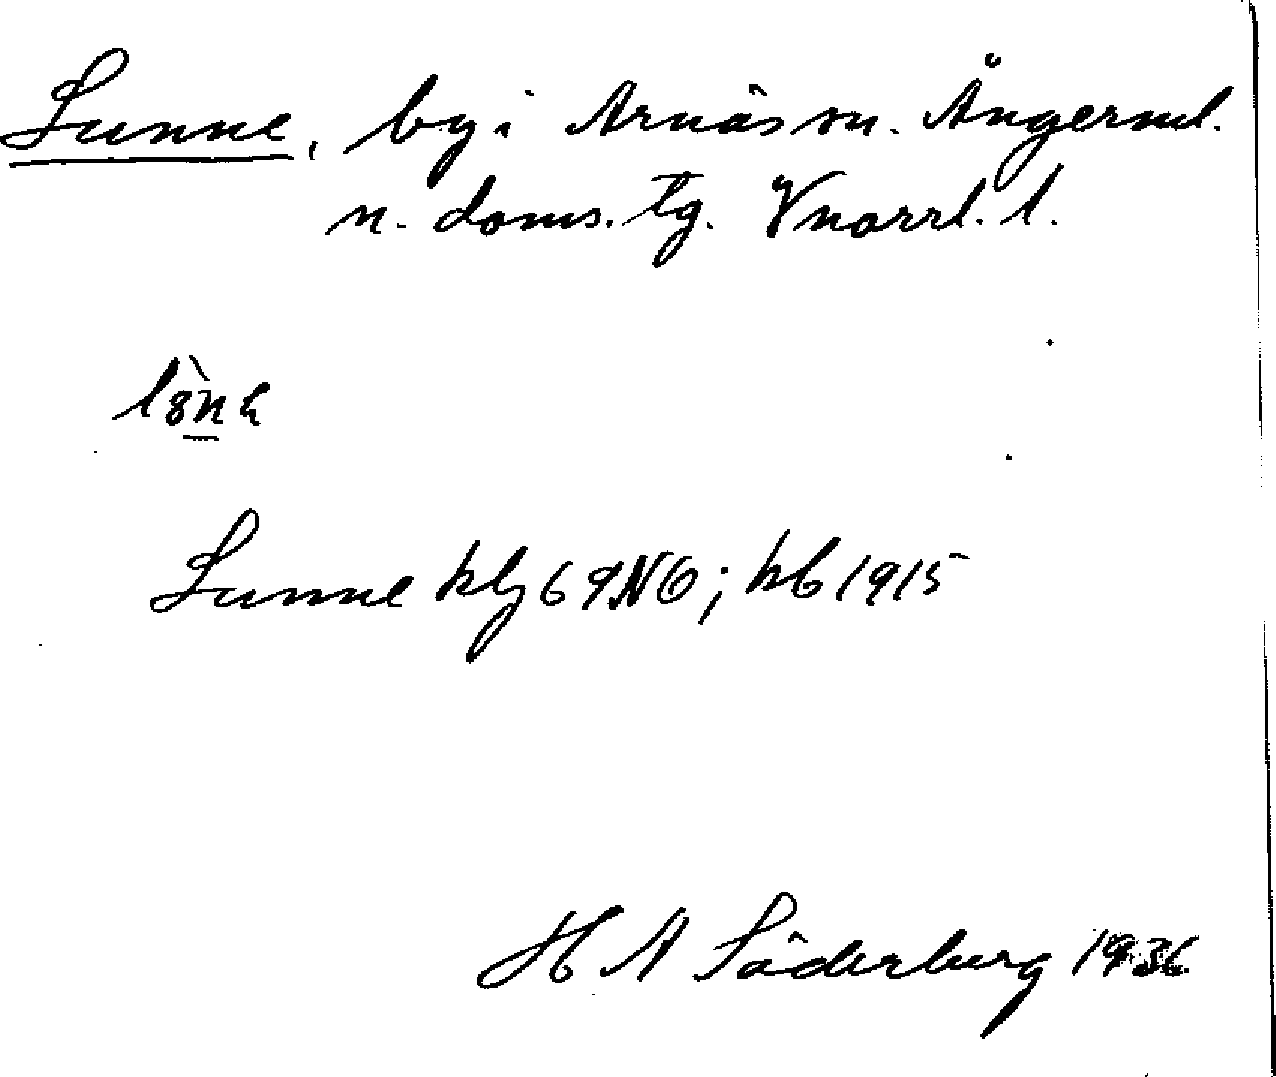 Lunne, by i Arnäs sn. Ångerml.
n. doms. tg. Vnorrl. l.
Lunne hlz 69NO; hb 1915
H A Söderberg 1936